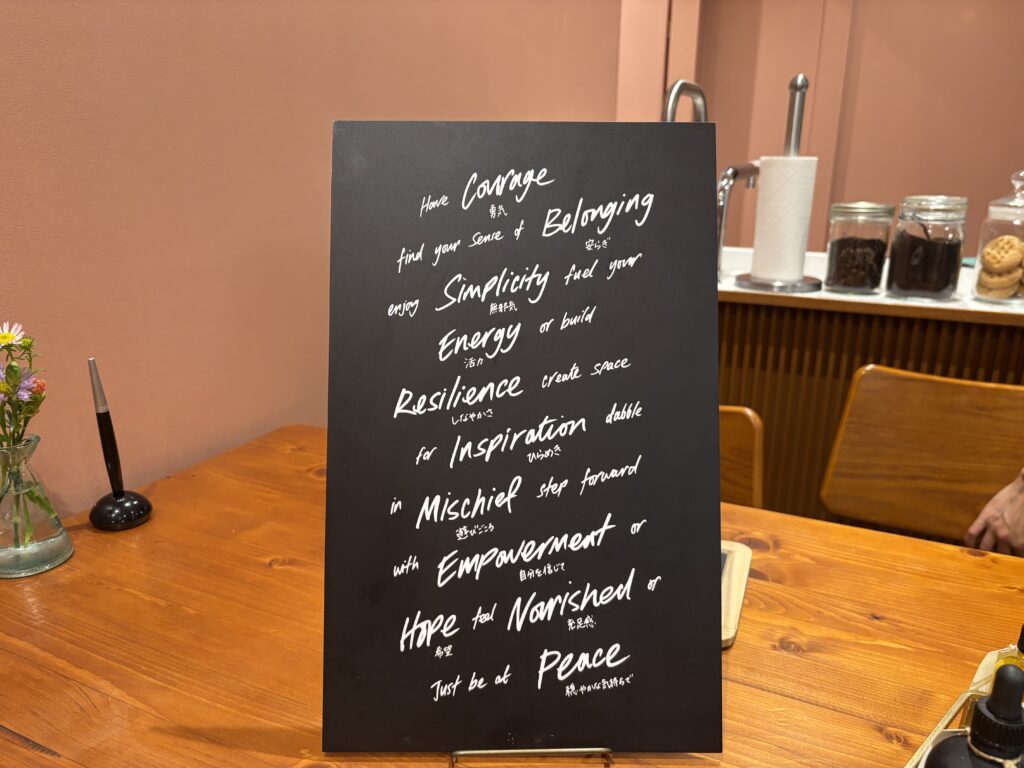 Have Courage
勇気
find your sense of Belonging
安らぎ
enjoy Simplicity fuel your
無邪気
Energy or build
活力
Resilience create space
しなやかさ
for Inspiration dabble
ひらめき
in Mischief step forward
遊びごころ
with Empowerment or
自分を信じて
Hope feel Nourished or
希望 充足感
Just be at Peace
穏やかな気持ちで